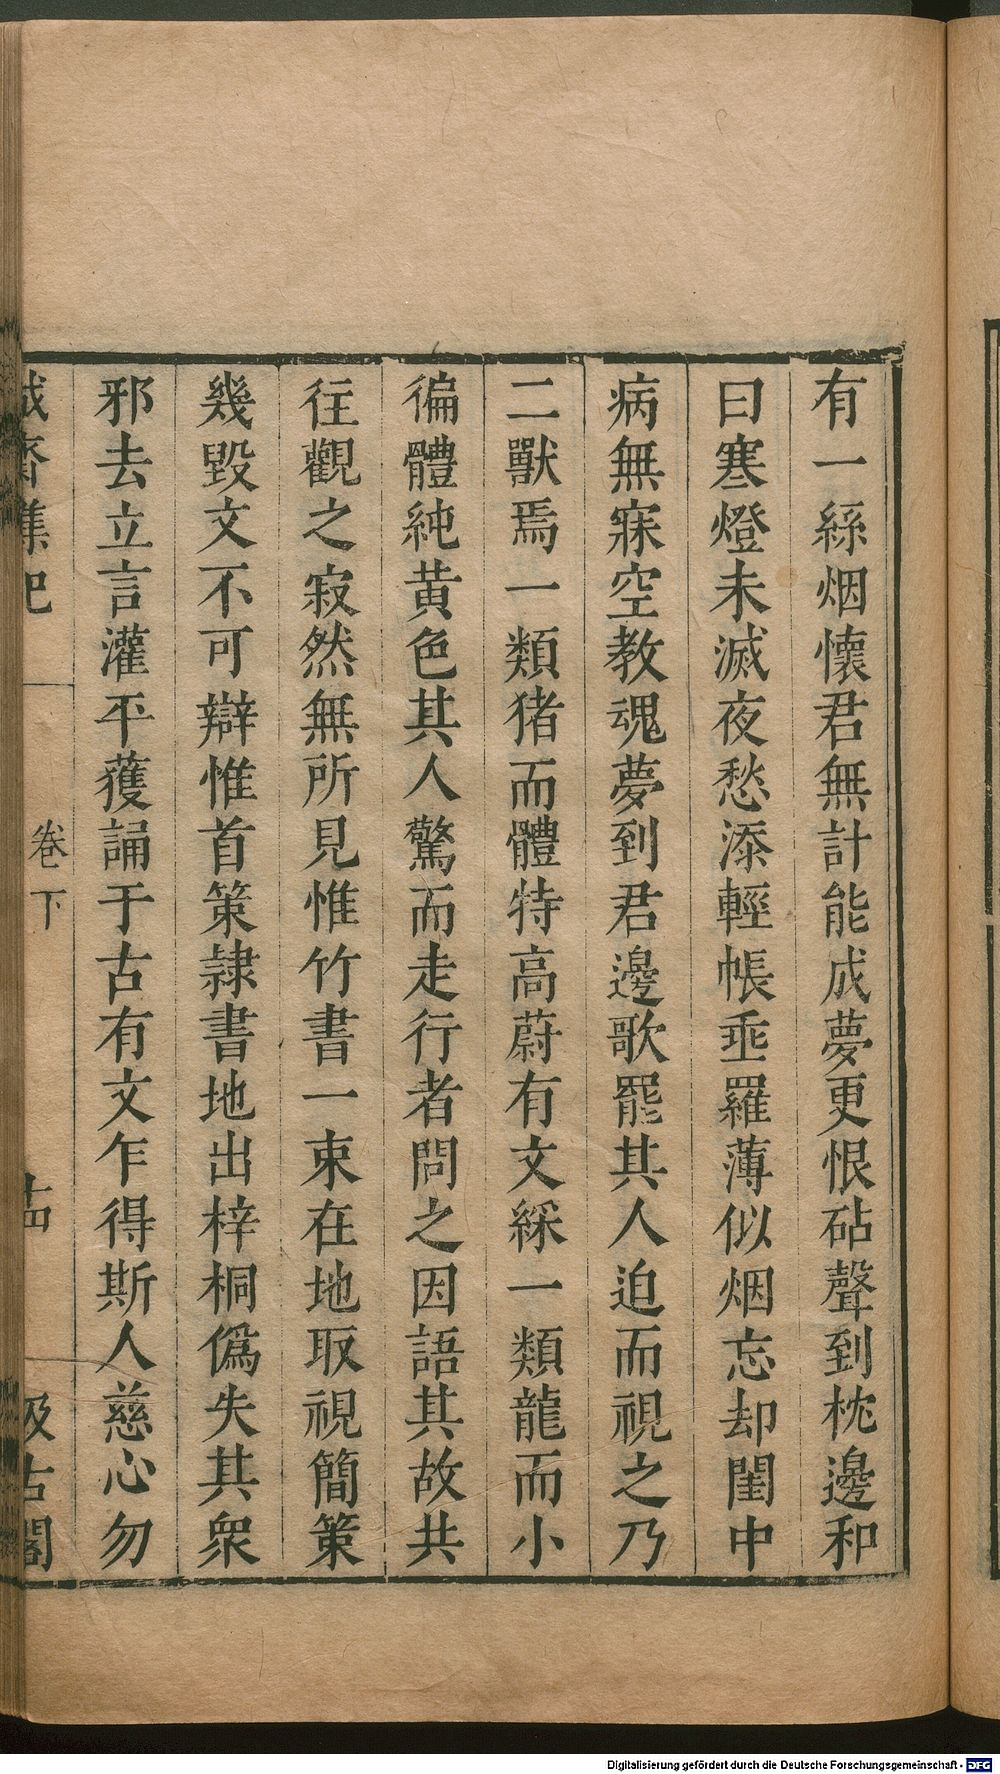 有一絲烟懷君無計能成夢更恨砧聲到枕邊和
曰寒燈未滅夜愁添輕帳垂羅薄似烟忘却閨中
病無寐空教魂夢到君邊歌罷其人迫而視之乃
二獸焉一類猪而體特高蔚有文綵一類龍而小
徧體純黄色其人驚而走行者問之因語其故共
往觀之寂然無所見惟竹書一束在地取視簡策
幾毀文不可辯惟首策隷書地出梓桐僞失其衆
邪去立言灌平蒦誦于古有文乍得斯人慈心勿
卷下
汲古閣
Digitalisierung gefördert durch die Deutsche Forschungsgemeinschaft - DFG